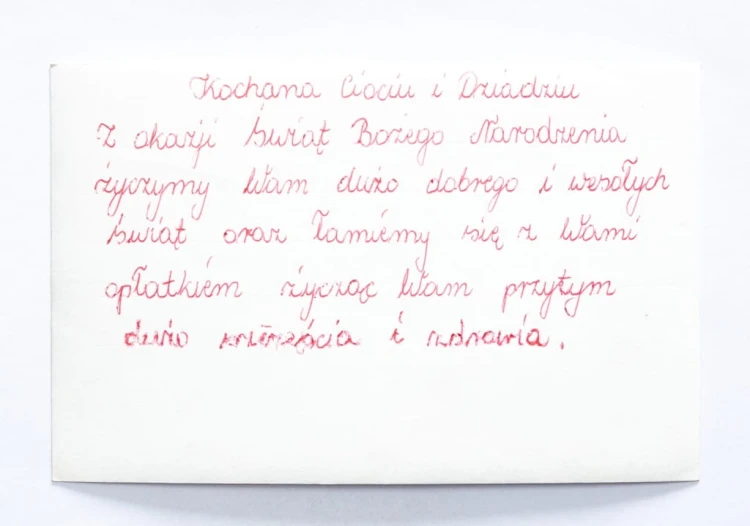 Kochana Ciociu i Dziadziu
Z okazji Świąt Bożego Narodzenia
życzymy Wam dużo dobrego i wesołych
świąt oraz łamiemy się z Wami
opłatkiem życząc Wam przytym
dużo szczęścia i zdrowia.